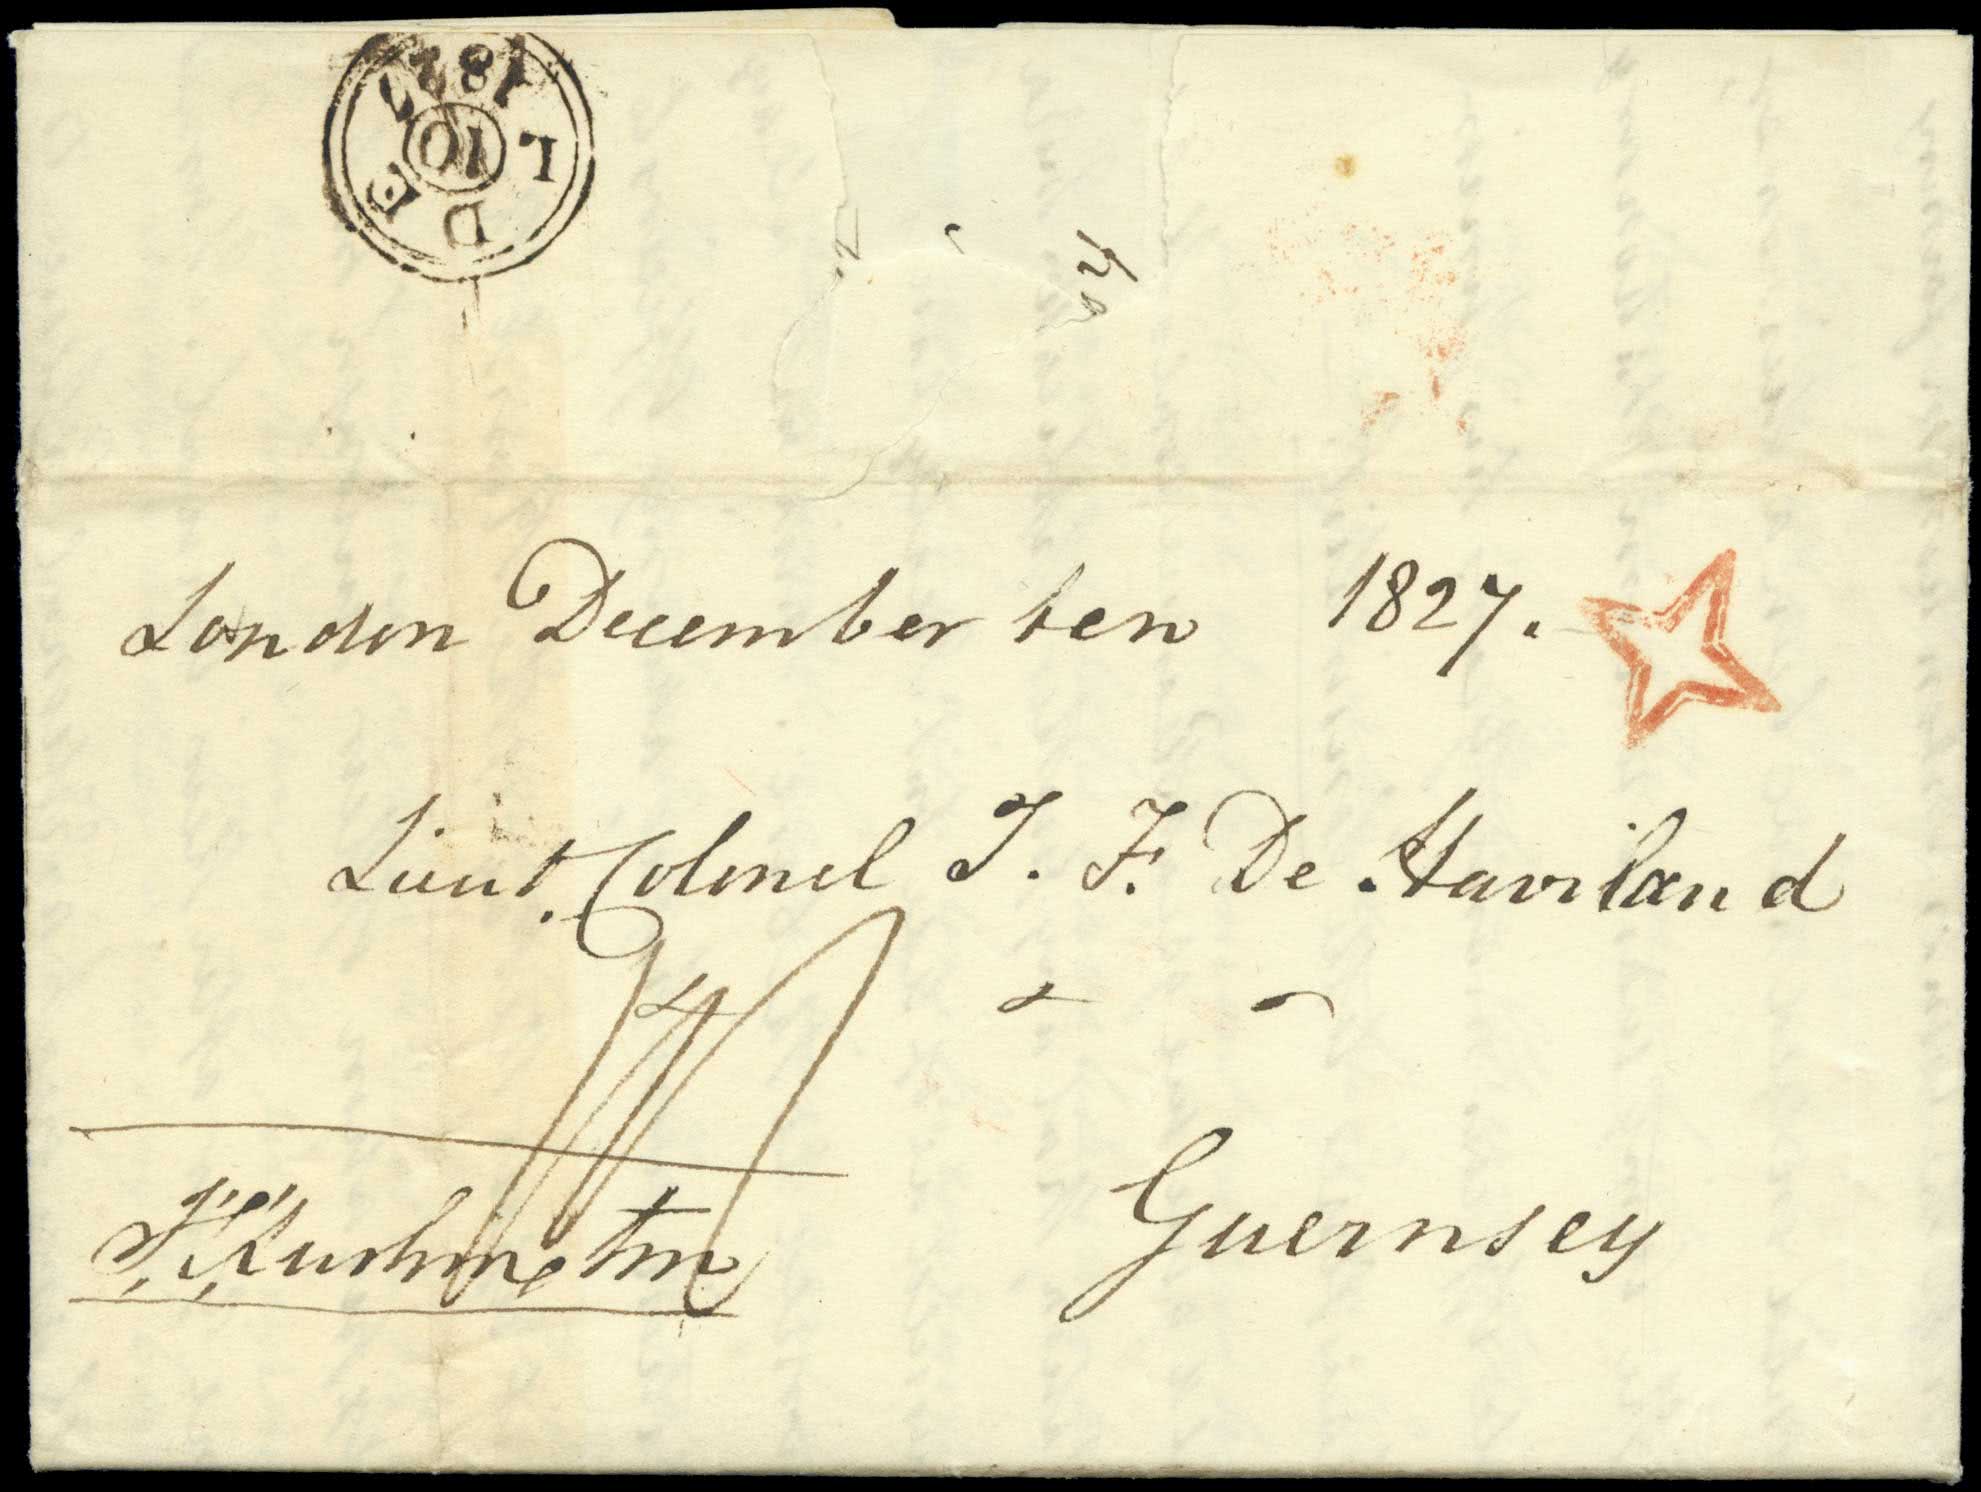 L DE
10
1827
London December ten 1827.
Lieut. Colonel T. F. De Haviland
Guernsey